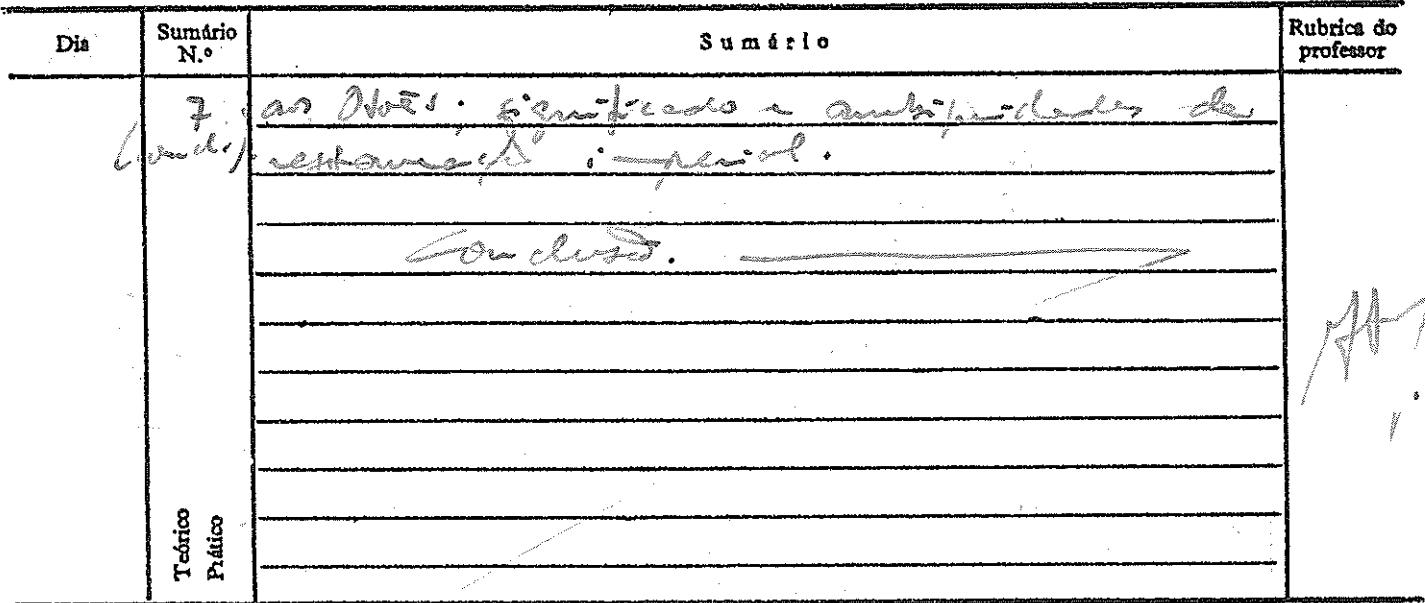 Dia
Sumário N.º
Sumário
Rubrica do professor
7 aos Otões; significado e ambiguidades da
(concl.) restauração imperial.
Conclusão.
Teórico
Prático